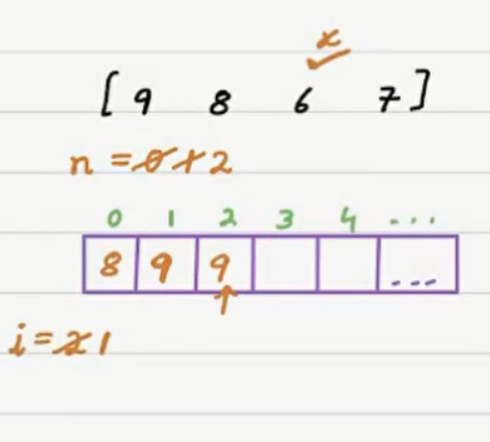 x
[ 9 8 6 7 ]
n = 0 1 2
0 1 2 3 4 ...
8 9 9 ...
i = 2 1